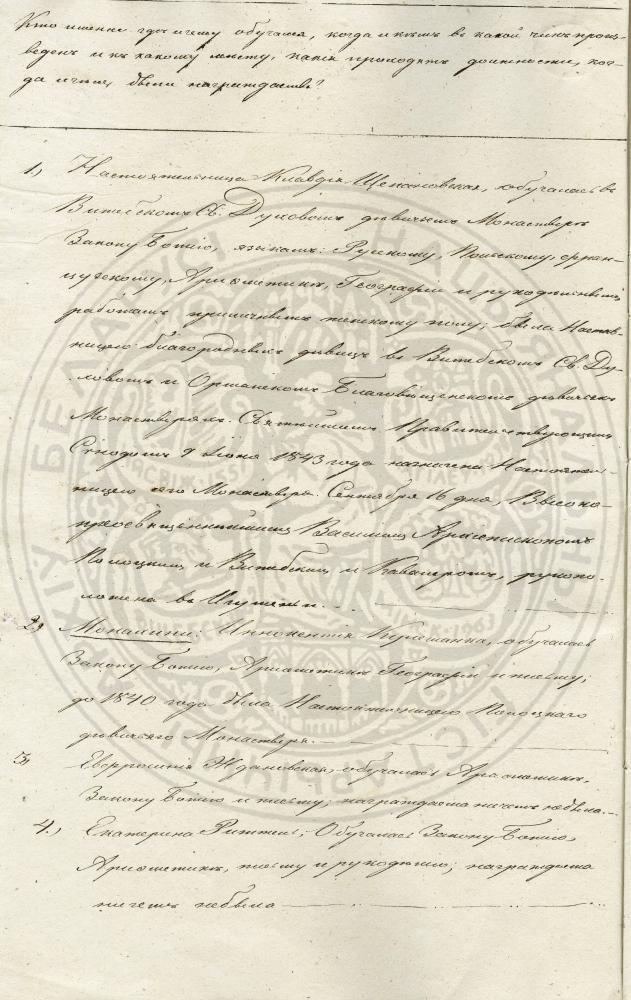 Кто именно гдѣ и чему обучался, когда и кѣмъ въ какой чинъ произ-
веденъ и къ какому мѣсту, какія проходилъ должности, ког-
да и чѣмъ былъ награждаемъ?
1.) Настоятельница Клавдія Щепановская, обучалась въ
Витебскомъ Св. Духовомъ дѣвичьемъ Монастырѣ
Закону Божію, языкамъ: Русскому, Польскому, фран-
цузскому, Арифметикѣ, Географіи и рукодѣльнымъ
работамъ приличнымъ женскому полу; была Настав-
ницею благородныхъ дѣвицъ въ Витебскомъ Св. Ду-
ховомъ и Оршанскомъ Благовѣщенскомъ дѣвичьихъ
Монастыряхъ. Святѣйшимъ Правительствующимъ
Сѵнодомъ 9 Іюня 1843 года назначена Настоятель-
ницею сего Монастыря. Сентября 16 дня, Высоко-
преосвященнѣйшимъ Василіемъ Архіепископомъ
Полоцкимъ и Витебскимъ и Кавалеромъ, рукопо-
ложена въ Игуменьи.
2.) Монахини: Иннокентія, обучалась
Закону Божію, Арифметикѣ Географіи и письму;
до 1840 года была Настоятельницею Полоцкаго
дѣвичьяго Монастыря.
3.) Евфросинія Ждановская, обучалась Арифметикѣ,
Закону Божію и письму; награждаема ничемъ небыла.
4.) Екатерина; Обучалась Закону Божію,
Арифметикѣ, письму и рукодѣлію; награждаема
ничемъ небыла
БЕЛАРУСІ
НАЦЫЯНАЛЬНЫ
ГІСТАРЫЧНЫ
АРХІЎ